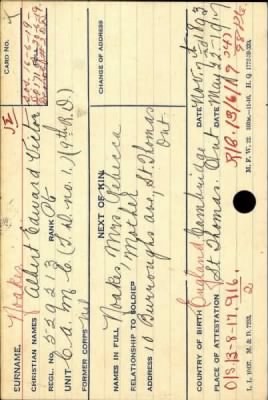 CARD NO.
SURNAME. Noakes
CHRISTIAN NAMES Albert Edward Victor
REGL. NO. 529213 RANK Pte
UNIT C.A.M.C. (T.D. no. 1.)
FORMER CORPS Nil
CHANGE OF ADDRESS
NEXT OF KIN.
NAMES IN FULL Noakes, Mrs Rebecca
RELATIONSHIP TO SOLDIER Mother
ADDRESS 10 Burroughs ave, St. Thomas
Ont.
COUNTRY OF BIRTH England, Cambridge DATE Nov. 7th 1893
PLACE OF ATTESTATION St. Thomas. Ont DATE May 22nd 1917
O/S 13-8-17. 916
2
L. L. 10467. M. & D. 7293.
M. F. W. 22.
H. Q. 1772-39-339.